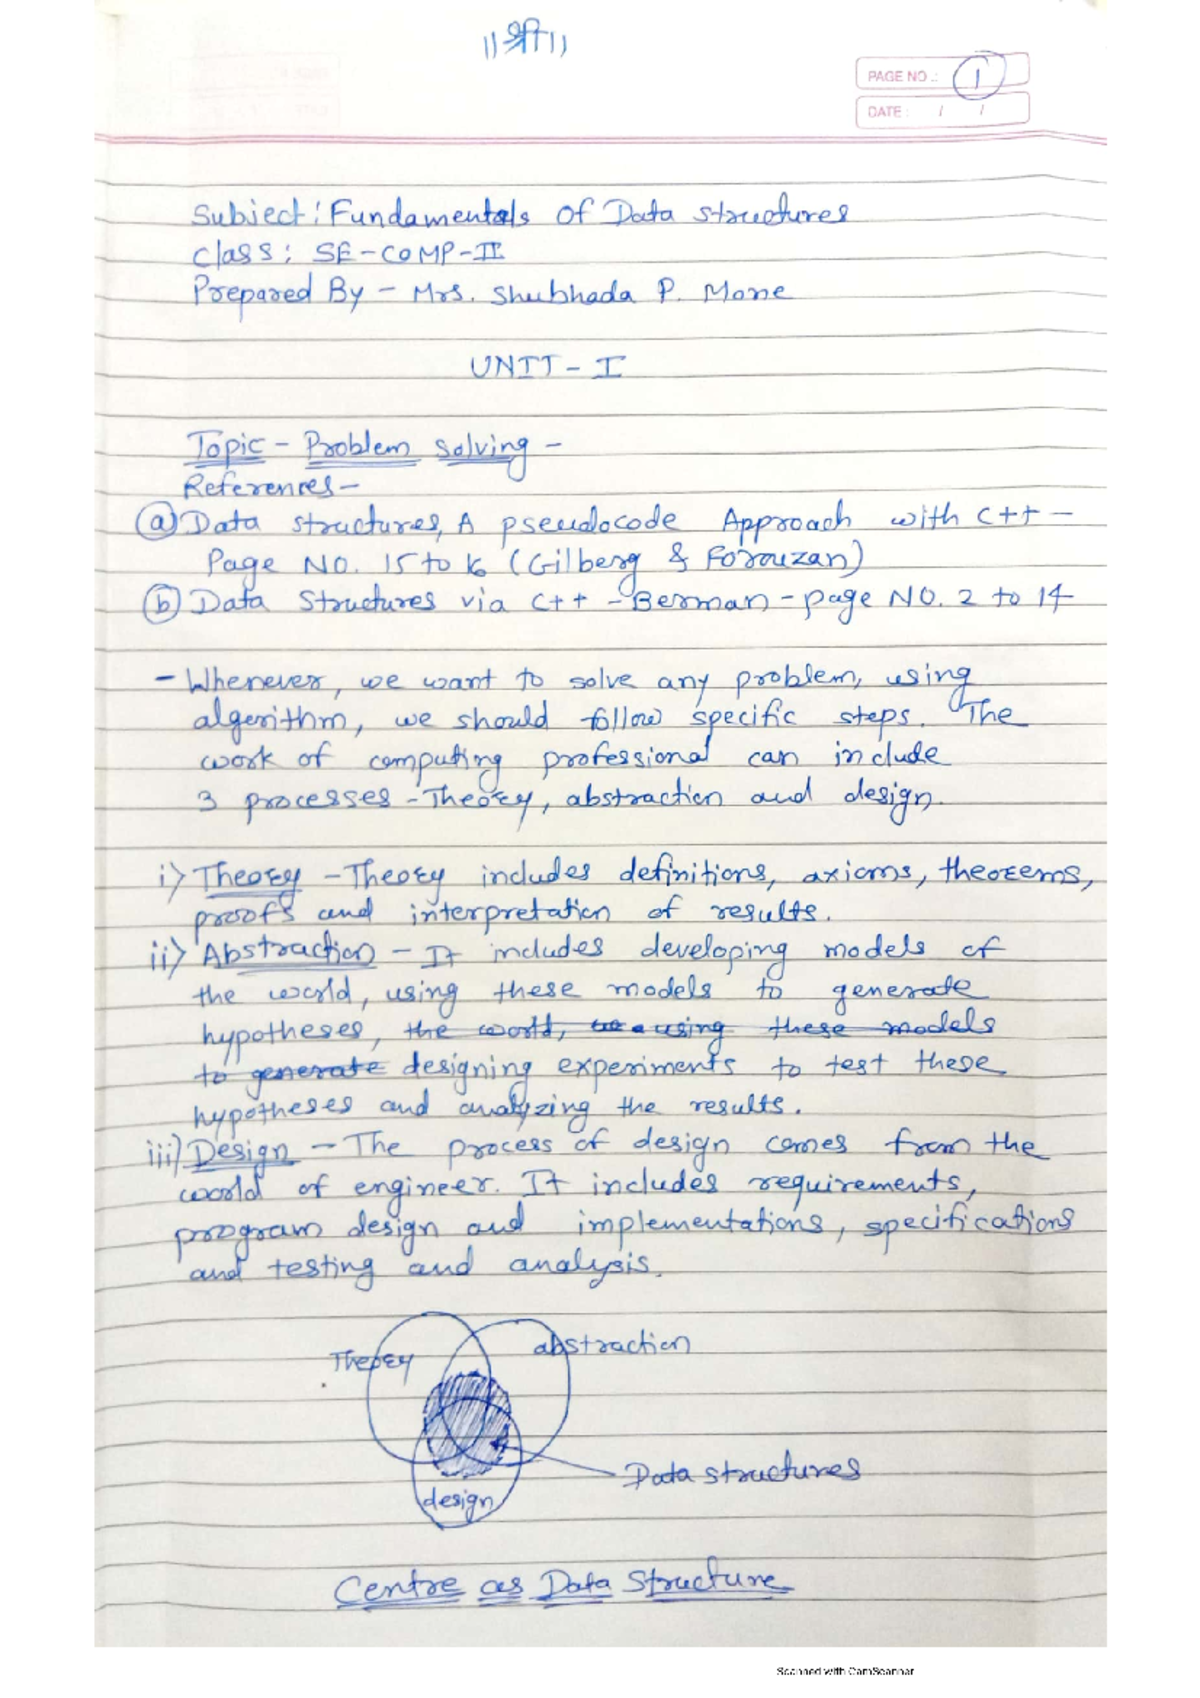 ॥श्री॥
PAGE NO.: 1
DATE: / /
Subject: Fundamentals Of Data structures
Class: SE-COMP-II
Prepared By - Mrs. Shubhada P. Mone
UNIT - I
Topic - Problem solving -
References -
(a) Data structures, A pseudocode Approach with C++ -
Page No. 15 to 16 (Gilberg & Forouzan)
(b) Data Structures via C++ - Berman - page NO. 2 to 14
- Whenever, we want to solve any problem, using
algorithm, we should follow specific steps. The
work of computing professional can include
3 processes - Theory, abstraction and design.
i) Theory - Theory includes definitions, axioms, theorems,
proofs and interpretation of results.
ii) Abstraction - It includes developing models of
the world, using these models to generate
hypotheses, the world, using these models
to generate designing experiments to test these
hypotheses and analyzing the results.
iii) Design - The process of design comes from the
world of engineer. It includes requirements,
program design and implementations, specifications
and testing and analysis.
Theory
abstraction
Data structures
design
Centre as Data Structure
Scanned with CamScanner